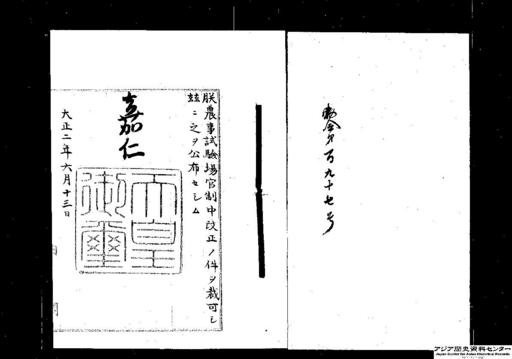 勅令第百九十七号
朕農事試験場官制中改正ノ件ヲ裁可シ
玆ニ之ヲ公布セシム
嘉仁
天皇御璽
大正二年六月十三日
アジア歴史資料センター
Japan Center for Asian Historical Records